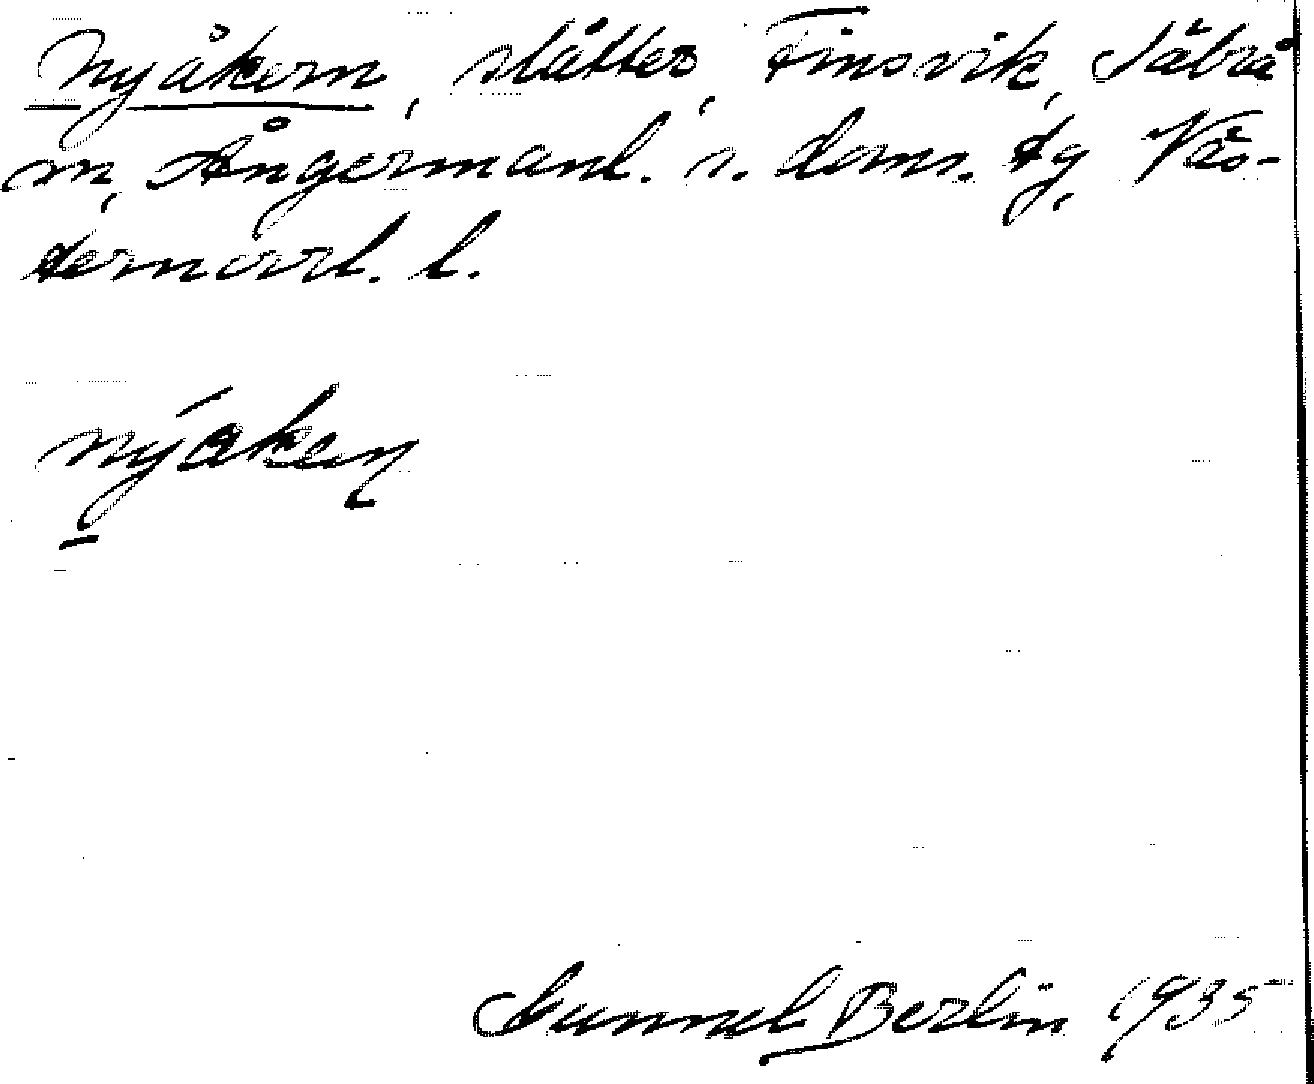 Nyåkern, slåtter, Finsvik, Säbrå
sn, Ångermanl. s. doms. tg, Väs-
ternorrl. l.
nýaken
Gunnel Berlin 1935